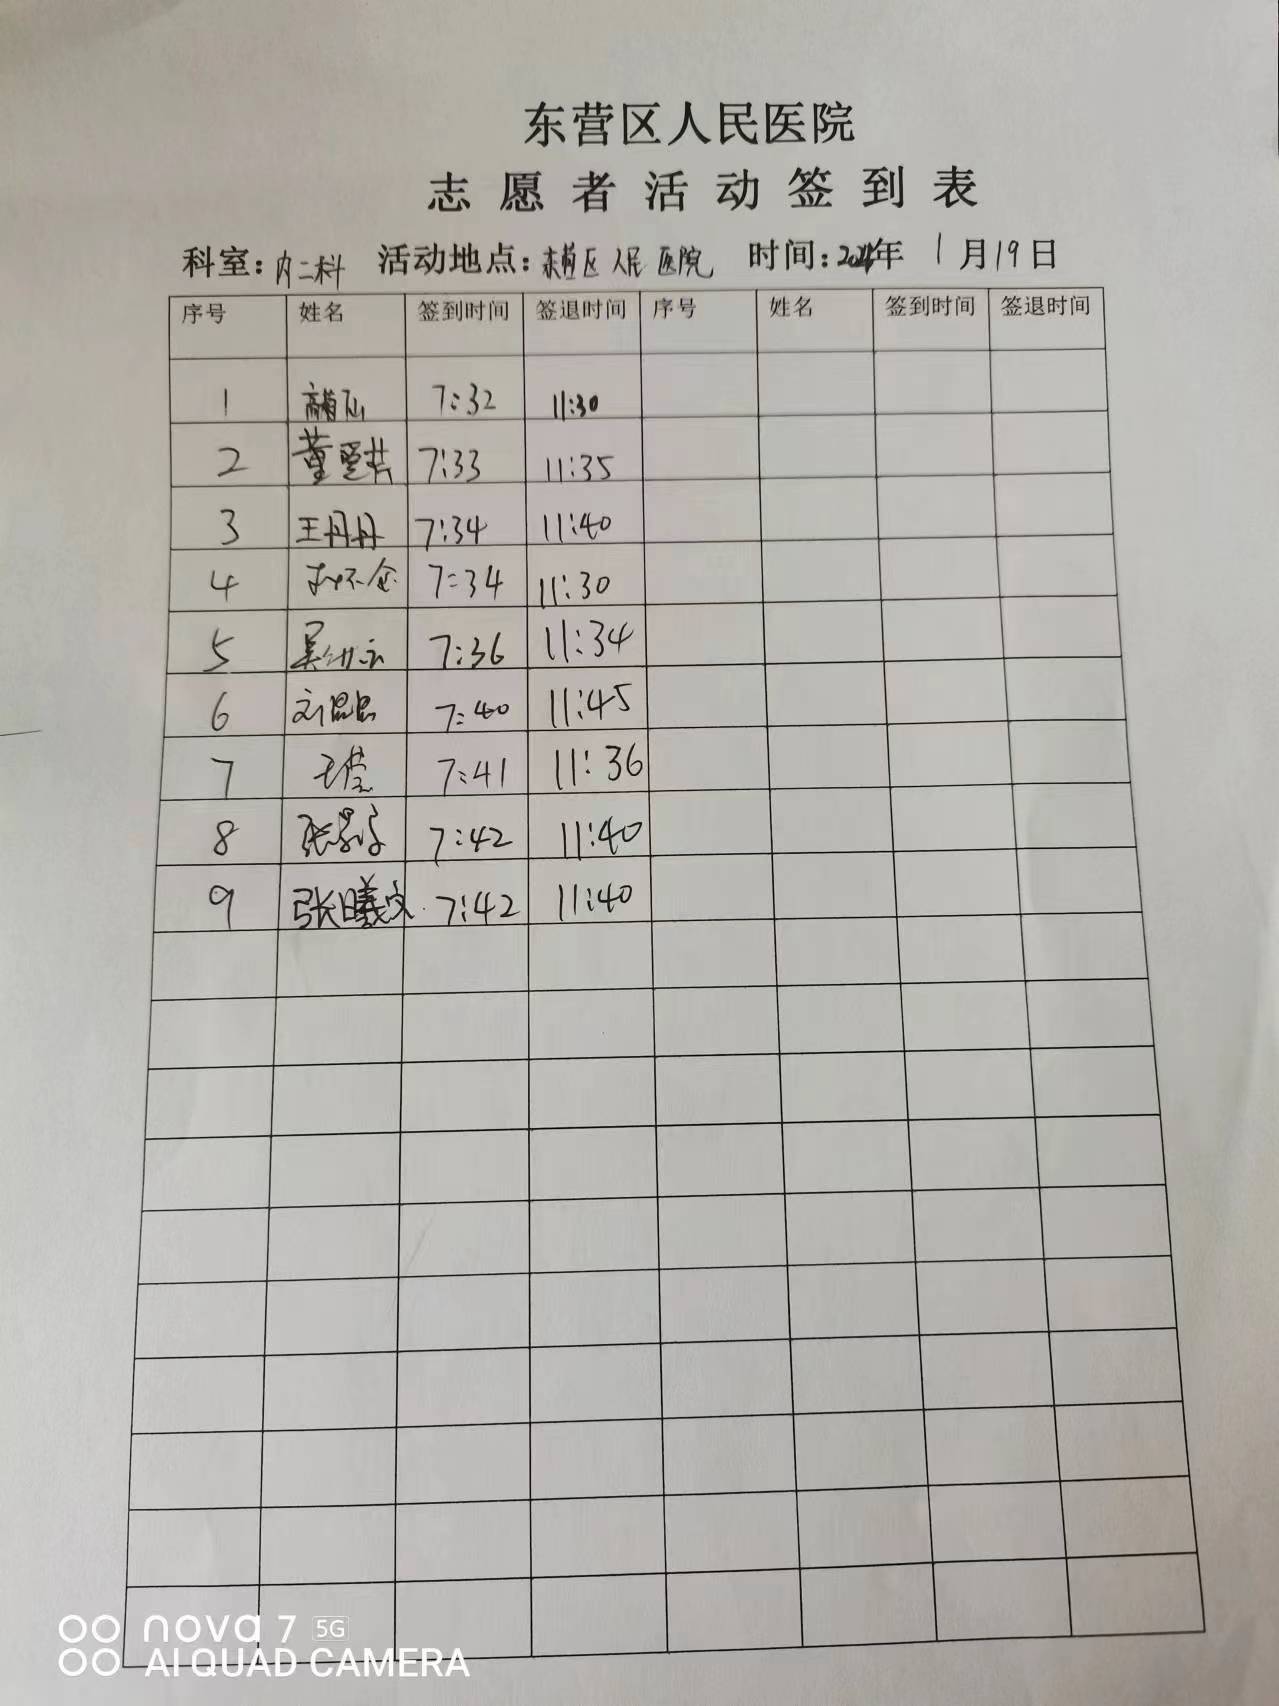 东营区人民医院
志愿者活动签到表
科室:内二科 活动地点:东营区人民医院 时间:年 1月19日
序号 姓名 签到时间 签退时间 序号 姓名 签到时间 签退时间
1 7:32 11:30
2 董 7:33 11:35
3 王丹丹 7:34 11:40
4 7:34 11:30
5 吴 7:36 11:34
6 刘昆昆 7:40 11:45
7 王莹 7:41 11:36
8 张 7:42 11:40
9 张曦文 7:42 11:40
nova 7 5G
AI QUAD CAMERA